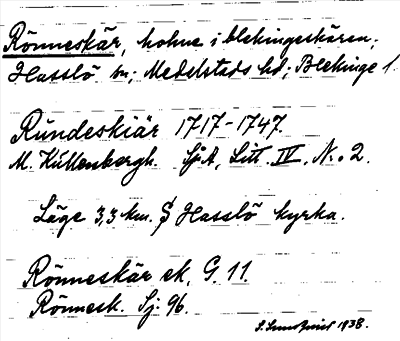 Rönneskär, holme i blekingeskären;
Hasslö sn; Medelstads hd; Blekinge l.
Rundeskiär 1717-1747.
M. Kullenbergh. SjA, Litt. IV, Nr. 2.
Läge 3,3 km. S Hasslö kyrka.
Rönneskär ek. G. 11.
Rönnesk. Sj. 96.
1938.